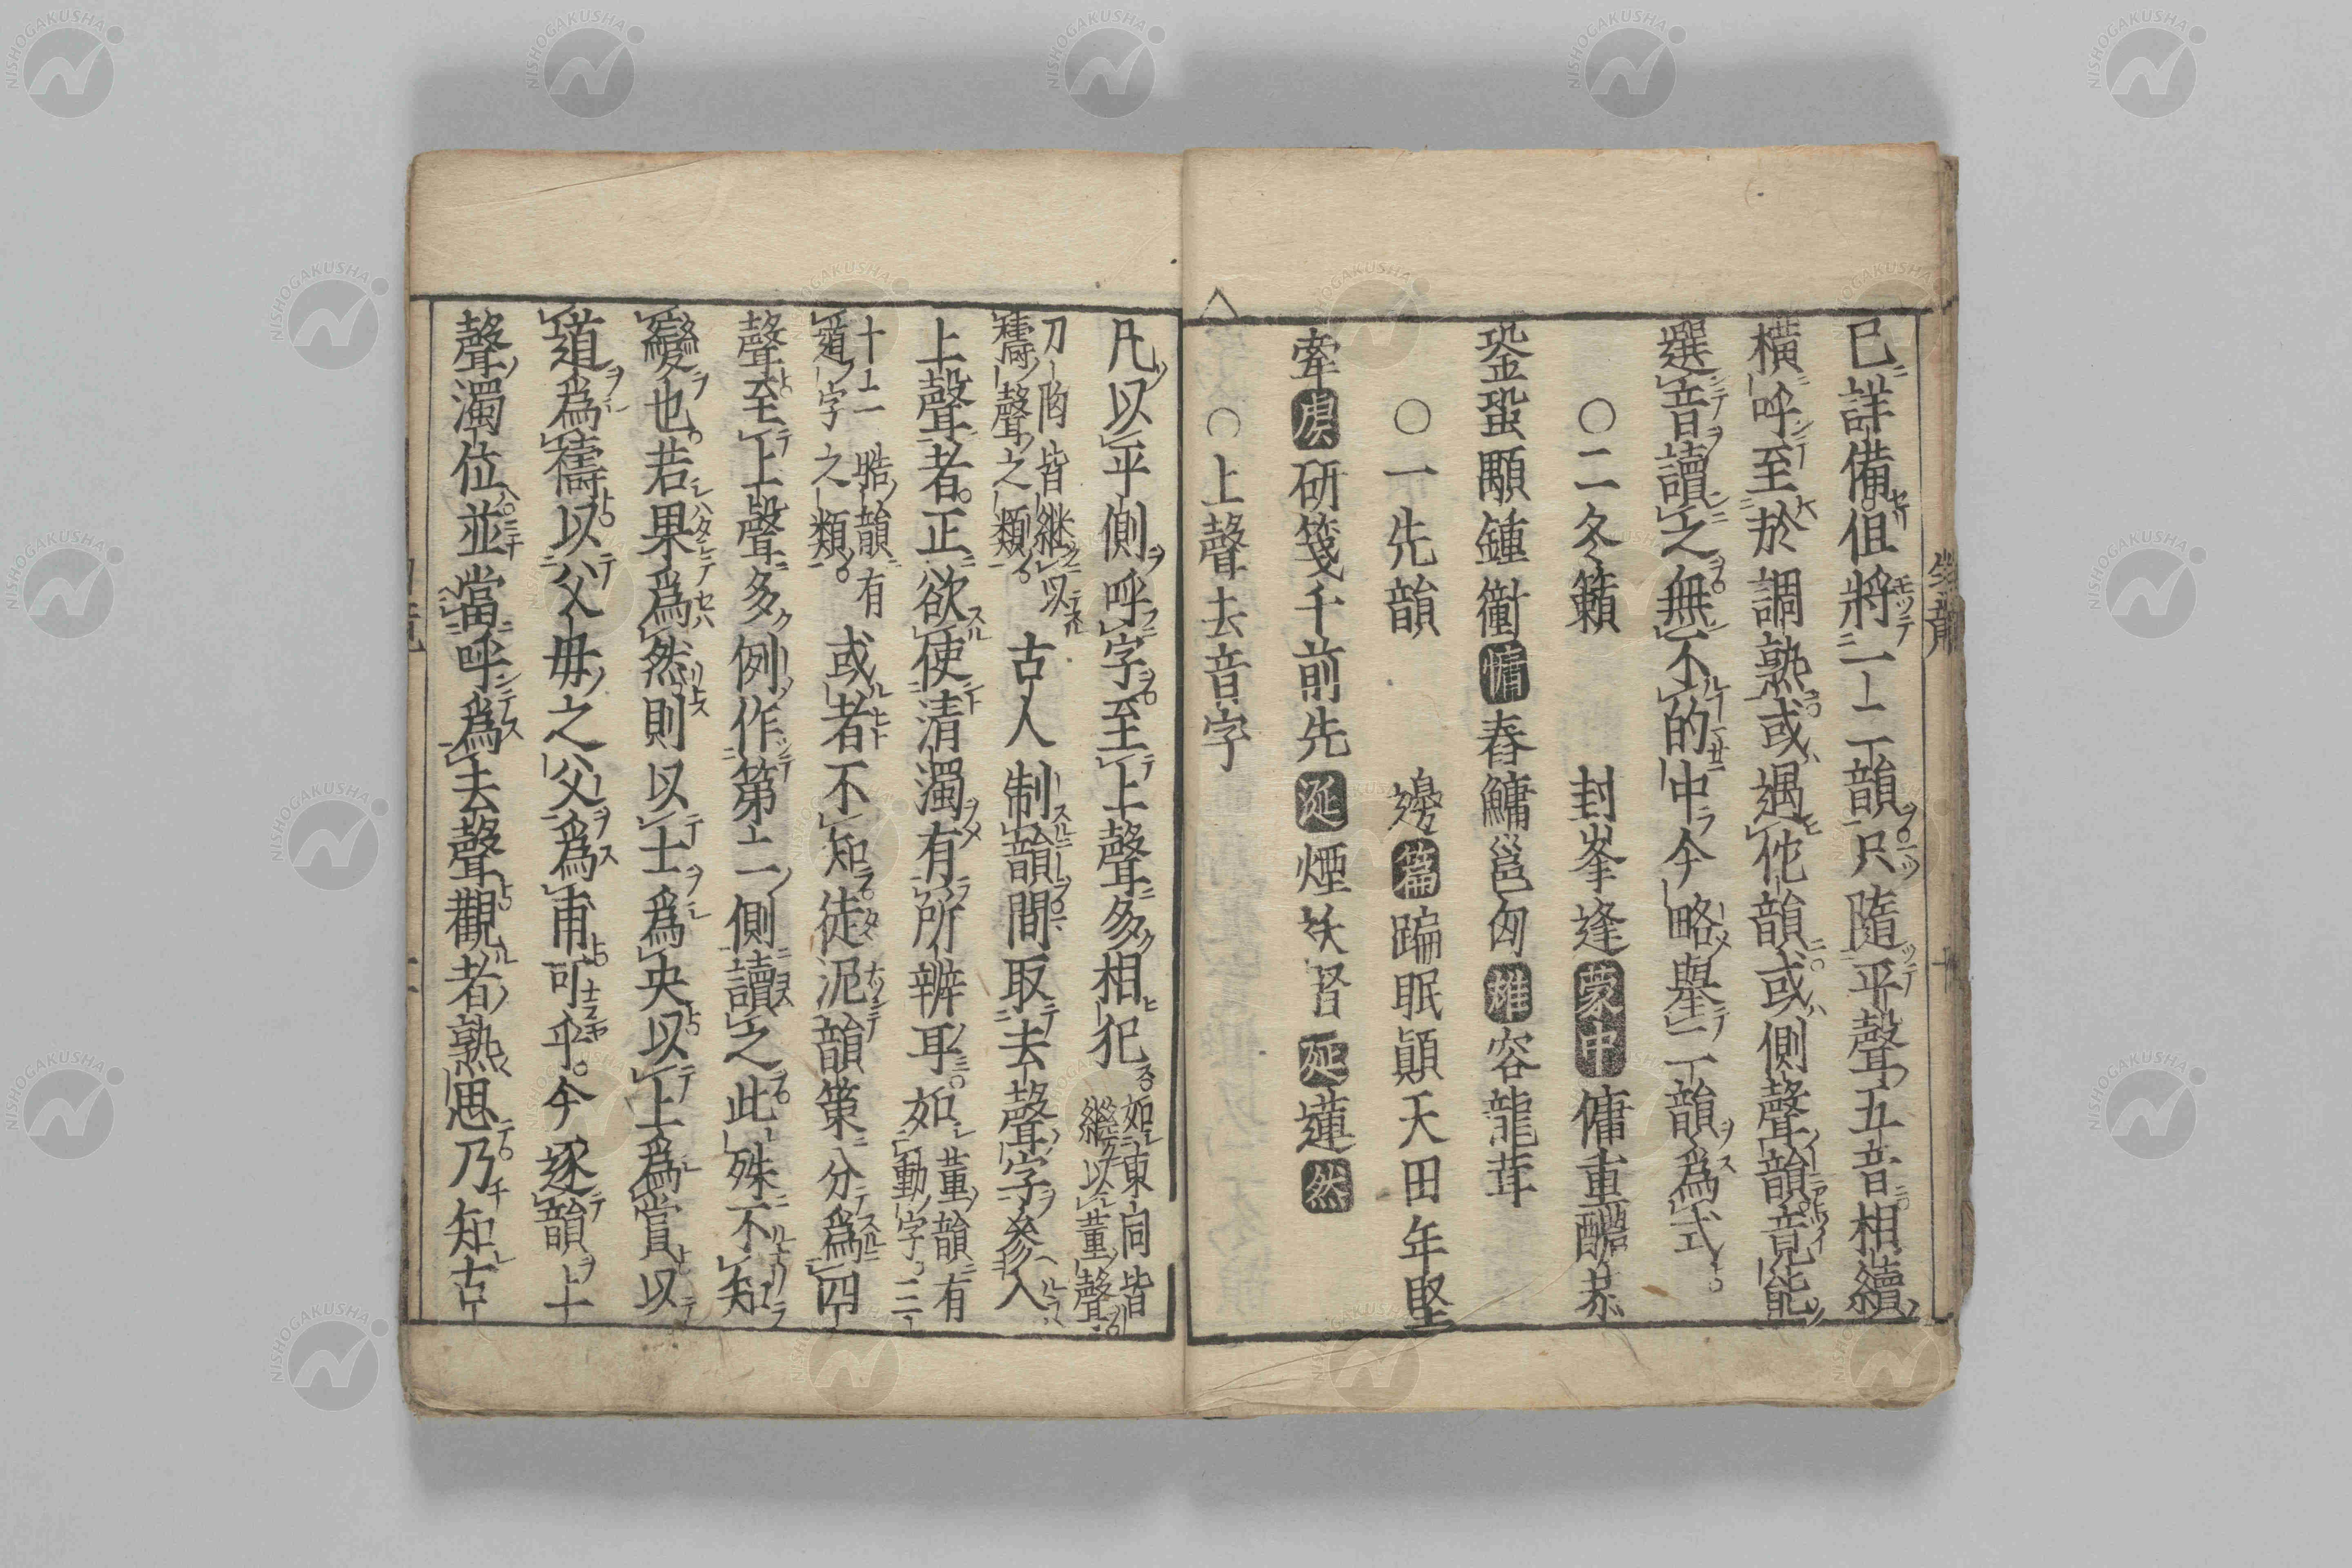 已詳備但將一二韻只隨平聲五音相續
橫呼至於調熟或遇佗韻或側聲韻竟能
選音讀之無不的中今略舉一二韻爲式
○二冬籟　封峯逢蒙中傭重醲恭
銎蛩顒鍾衝慵舂鱅邕匈椎容龍茸
○一先韻　邊篇蹁眠顚天田年堅
牽䖍研箋千前先涎煙祅延蓮然
○上聲去音字
凡以平側呼字至上聲多相犯如東同皆
繼以董聲
刀匋皆継以
禱聲之類古人制韻間取去聲字參入
上聲者正欲使清濁有所辨耳如董韻有
動字三
十二晧韻有
道字之類或者不知徒泥韻策分爲四
聲至上聲多例作第二側讀之此殊不知
變也若果爲然則以士爲央以上爲賞以
道爲禱以父母之父爲甫可乎今逐韻上
聲濁位並當呼爲去聲觀者熟思乃知古
NISHOGAKUSHA